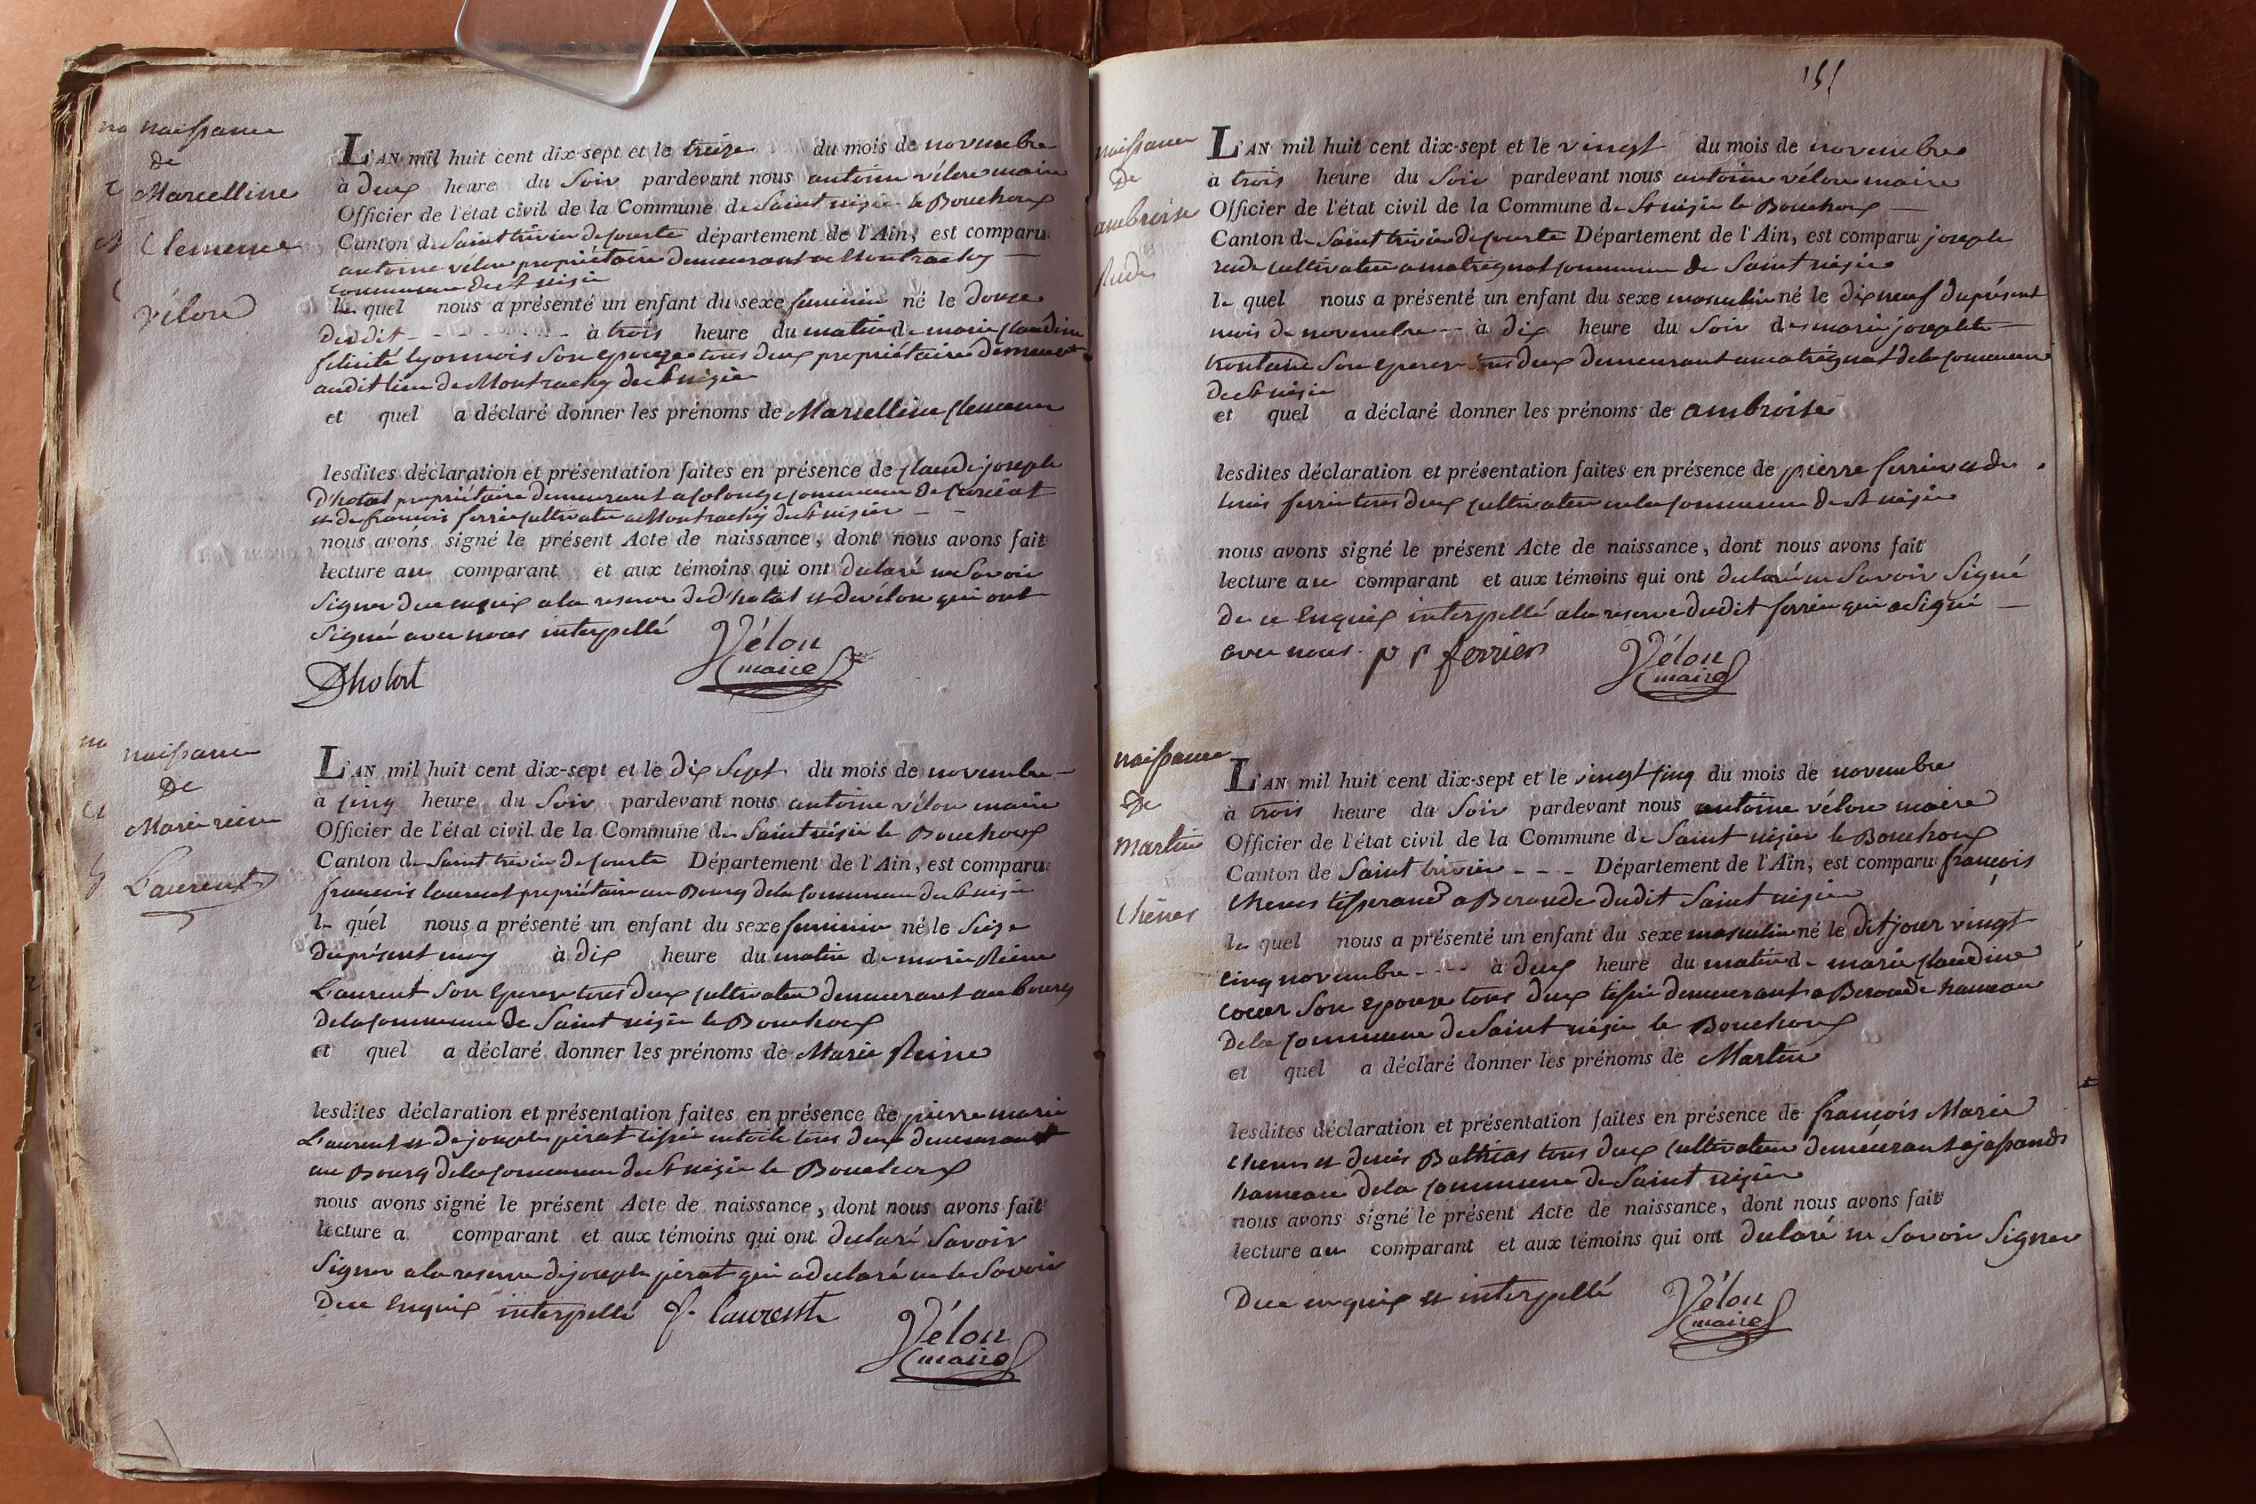 naissance
de
Marcelline
Clemence
Vélon
L'AN mil huit cent dix-sept et le treize du mois de novembre
à deux heure du soir pardevant nous antoine vélon maire
Officier de l'état civil de la Commune de Saint nizier le Bouchoux
Canton de Saint trivier de courte département de l'Ain, est comparu
antoine vélon propriétaire demeurant a Montrachy
commune de St nizier
le quel nous a présenté un enfant du sexe feminin né le douze
dudit à trois heure du matin de marie claudine
felicité lyonnois son epouze tous deux propriétaire demeurt
audit lieu de Montrachy de St nizier
et quel a déclaré donner les prénoms de Marcelline clemence
lesdites déclaration et présentation faites en présence de claude joseph
d'hotal propriétaire demeurant a folonge commune de Curciat
et de francois ferrier cultivateur a Montrachy de St nizier
nous avons signé le présent Acte de naissance, dont nous avons fait
lecture au comparant et aux témoins qui ont declaré ne savoir
signer de ce enquix a la reserve de d'hotal et de vélon qui ont
signé avec nous interpellé
Vélon
maire
Dhotal
naissance
de
Marie reine
Laurent
L'AN mil huit cent dix-sept et le dix sept du mois de novembre
à cinq heure du soir pardevant nous antoine vélon maire
Officier de l'état civil de la Commune de Saint nizier le Bouchoux
Canton de Saint trivier de courte Département de l'Ain, est comparu
francois laurent propriétaire au Bourg de la commune de St nizier
le quel nous a présenté un enfant du sexe feminin né le seize
du présent moy à dix heure du matin de marie Reine
Laurent son epouze tous deux cultivateur demeurant au bourg
de la commune de Saint nizier le Bouchoux
et quel a déclaré donner les prénoms de Marie Reine
lesdites déclaration et présentation faites en présence de pierre marie
Laurent et de joseph pirat tissier en toile tous deux demeurant
au Bourg de la commune de St nizier le Bouchoux
nous avons signé le présent Acte de naissance, dont nous avons fait
lecture a comparant et aux témoins qui ont declaré savoir
signer a la reserve de joseph pirat qui a declaré ne le savoir
de ce enquix interpellé f. laurent
Vélon
maire
151
naissance
de
ambroise
Rude
L'AN mil huit cent dix-sept et le vingt du mois de novembre
à trois heure du soir pardevant nous antoine vélon maire
Officier de l'état civil de la Commune de St nizier le Bouchoux
Canton de Saint trivier de courte Département de l'Ain, est comparu joseph
rude cultivateur a matregnat commune de Saint nizier
le quel nous a présenté un enfant du sexe masculin né le dix neuf du présent
mois de novembre à dix heure du soir de marie josephte
trontane son epouze tous deux demeurant a matrégnat de la commune
de St nizier
et quel a déclaré donner les prénoms de ambroise
lesdites déclaration et présentation faites en présence de pierre ferrier et de
louis ferrier tous deux cultivateur en la commune de St nizier
nous avons signé le présent Acte de naissance, dont nous avons fait
lecture au comparant et aux témoins qui ont declaré ne savoir signé
de ce enquix interpellé a la reserve dudit ferrier qui a signé
avec nous. p p ferrier
Vélon
maire
naissance
de
martin
chênes
L'AN mil huit cent dix-sept et le vingt cinq du mois de novembre
à trois heure du soir pardevant nous antoine vélon maire
Officier de l'état civil de la Commune de Saint nizier le Bouchoux
Canton de Saint trivier Département de l'Ain, est comparu françois
chenes tisserand a Beroude dudit Saint nizier
le quel nous a présenté un enfant du sexe masculin né le dit jour vingt
cinq novembre à deux heure du matin de marie claudine
coeur son epouze tous deux tissier demeurant a Beroude hameau
de la commune de Saint nizier le Bouchoux
et quel a déclaré donner les prénoms de Martin
lesdites déclaration et présentation faites en présence de françois Marie
chenes et denis Bathias tous deux cultivateur demeurant a jassands
hameau de la commune de Saint nizier
nous avons signé le présent Acte de naissance, dont nous avons fait
lecture au comparant et aux témoins qui ont declaré ne savoir signer
de ce enquix et interpellé
Vélon
maire